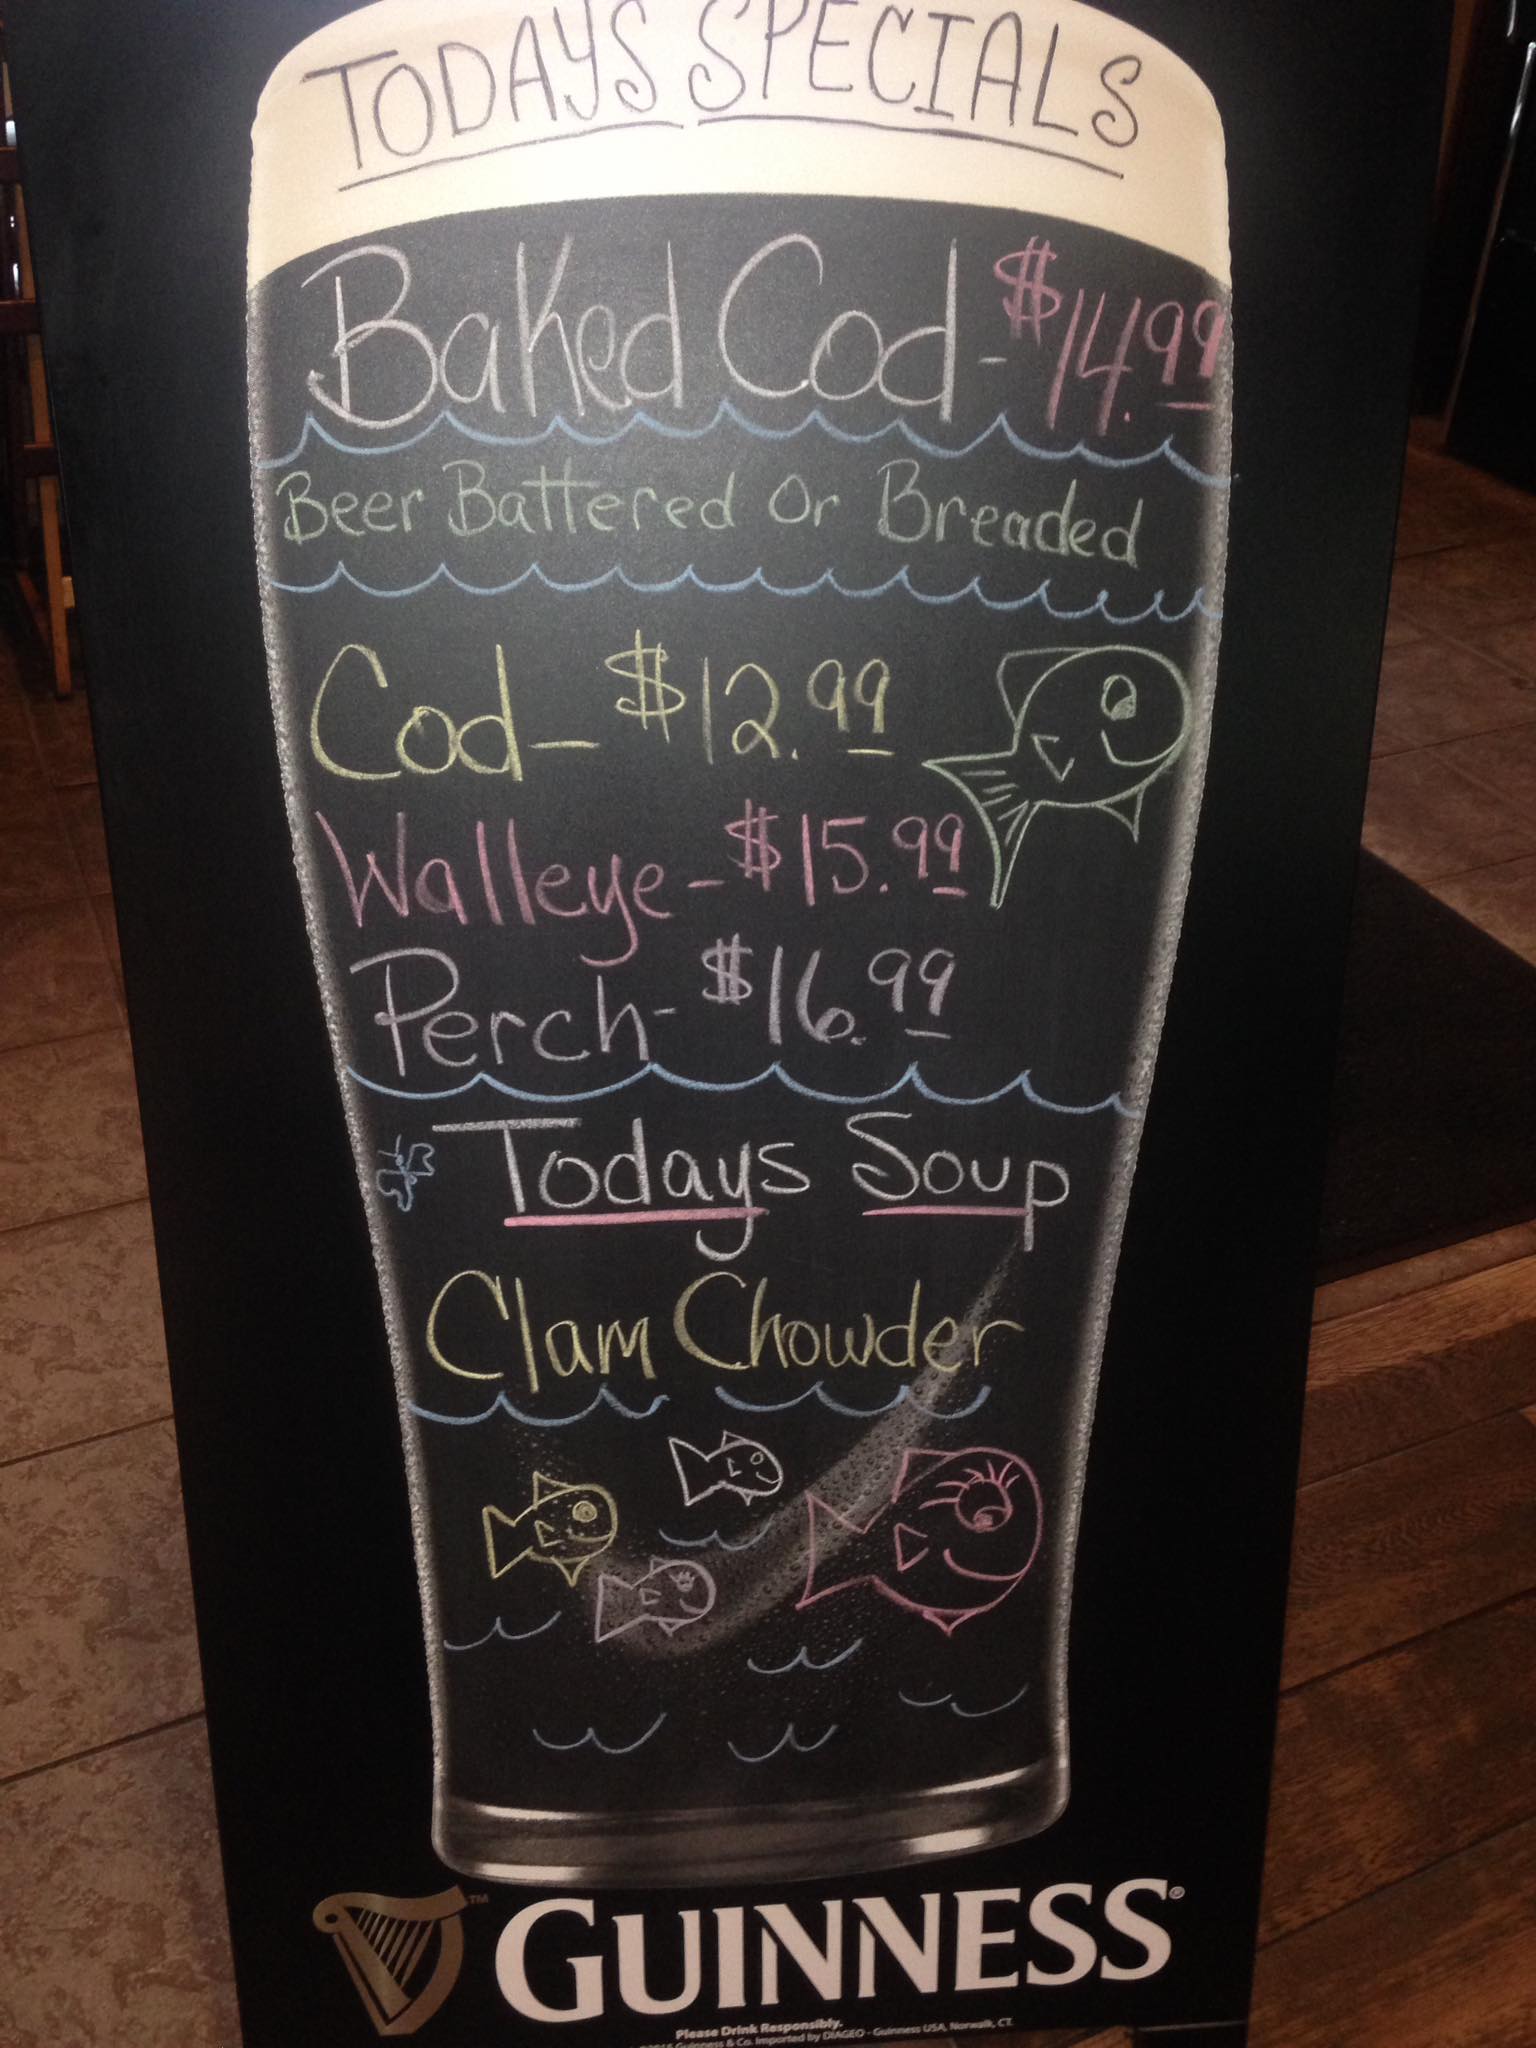 TODAYS SPECIALS
Baked Cod - $14.99
Beer Battered Or Breaded
Cod - $12.99
Walleye - $15.99
Perch - $16.99
Todays Soup
Clam Chowder
™
GUINNESS®
Please Drink Responsibly.
Guinness & Co. Imported by DIAGEO - Guinness USA, Norwalk, CT.